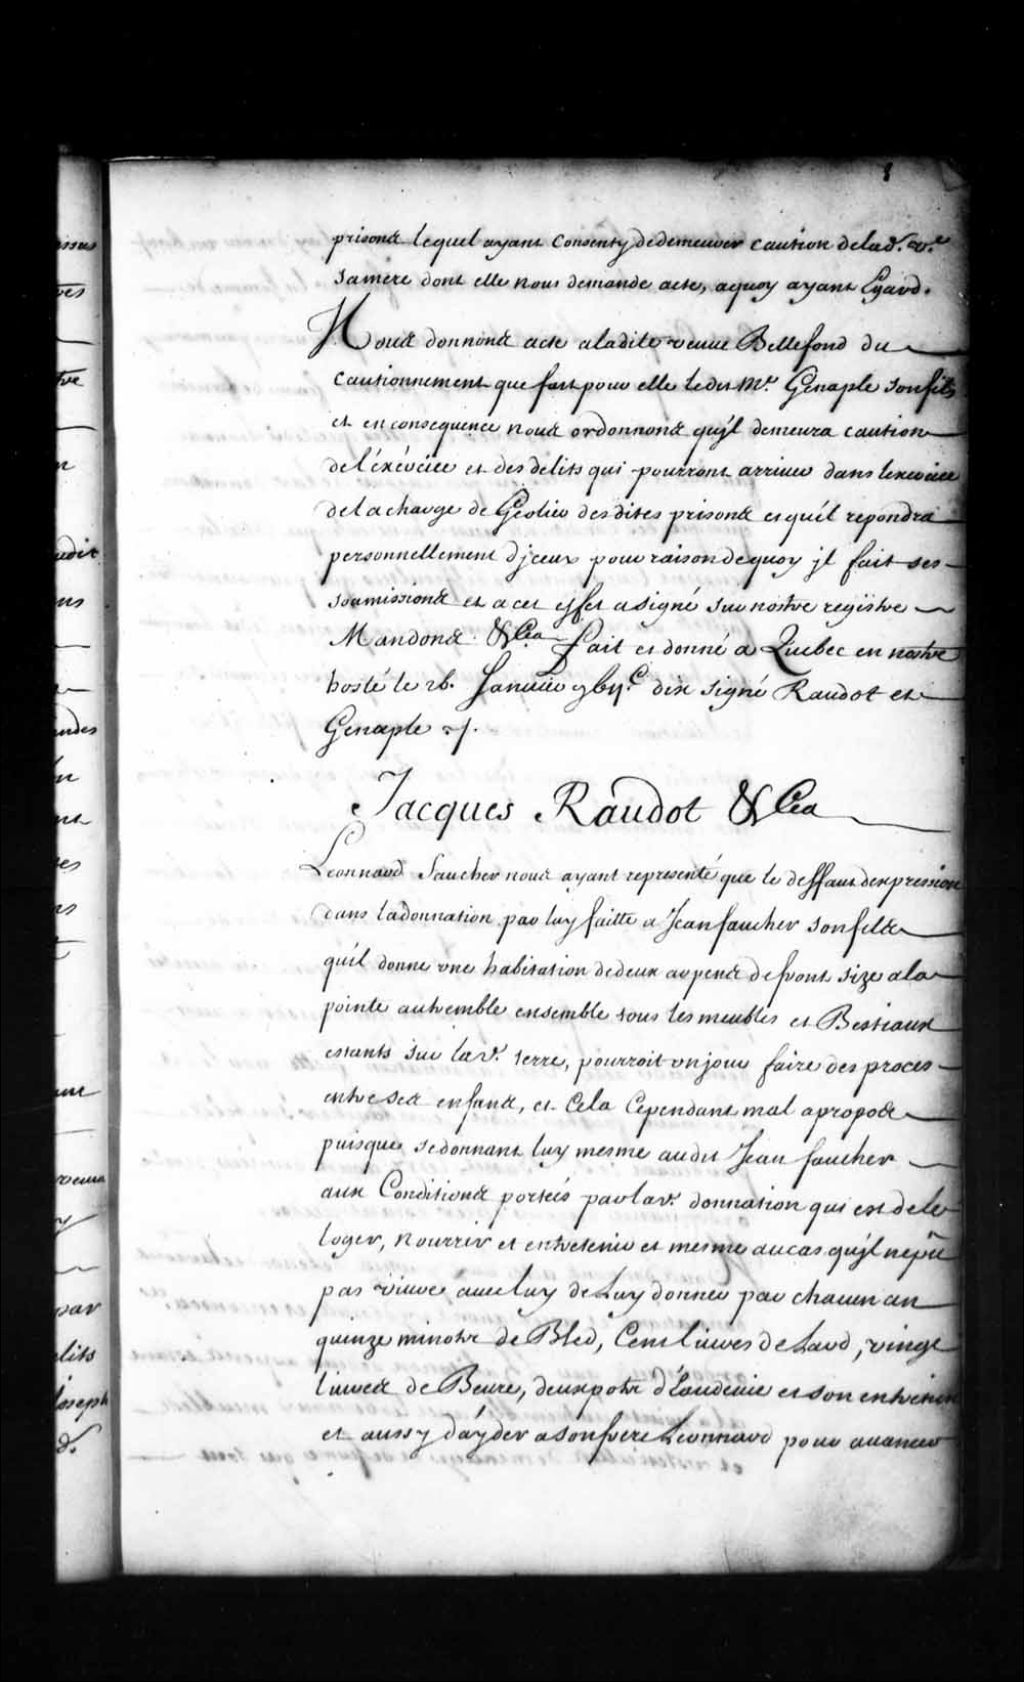 8
prisons lequel ayant Consenty de demeurer caution de lad. ve.
sa mere dont elle nous demande acte, aquoy ayant Egard.
Nous donnons acte a ladite veuve Bellefond du
Cautionnement que fait pour elle ledit Mr. Genaple son fils
et en consequence nous ordonnons qu'jl demeura caution
de l'éxércice et des delits qui pourront arriver dans lexercice
de la charge de Geolier desdites prisons et quil repondra
personnellement d'jceux pour raison de quoy jl fait ses
soumissions et a cet effet a signé sur nostre registre
Mandons &Ca fait et donné a Quebec en nostre
hostel le 26. Janvier 7bijc dix signé Raudot et
Genaple ./.
Jacques Raudot &Ca
Leonnard faucher nous ayant representé que le deffaut dexpression
dans la donnation par luy faitte a Jean faucher son fils
quil donne une habitation de deux arpens de front size a la
pointe autremble ensemble tous les meubles et Bestiaux
estants sur lad. terre, pourroit un jour faire des proces
entre ses enfans, et Cela Cependant mal apropos
puisque se donnant luy mesme audit Jean faucher
aux Conditions portées par lad. donnation qui est de le
loger, nourrir et entretenir et mesme au cas qu'jl ne pût
pas vivre avec luy de Luy donner par chacun an
quinze minots de Bled, Cent livres de Lard, vingt
livres de Beure, deux pots d'Eaudevie et son entretien
et aussy d'áyder a son frere Leonnard pour avancer
udit
ves
par
Joseph